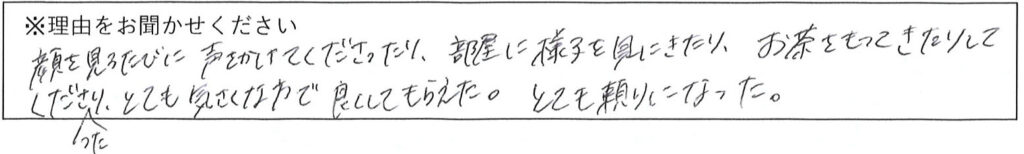 ※理由をお聞かせください
顔を見るたびに声をかけてくださったり、部屋に様子を見にきたり、お茶をもってきたりして
くださり、とても気さくなかで良くしてもらえた。とても頼りになった。
った